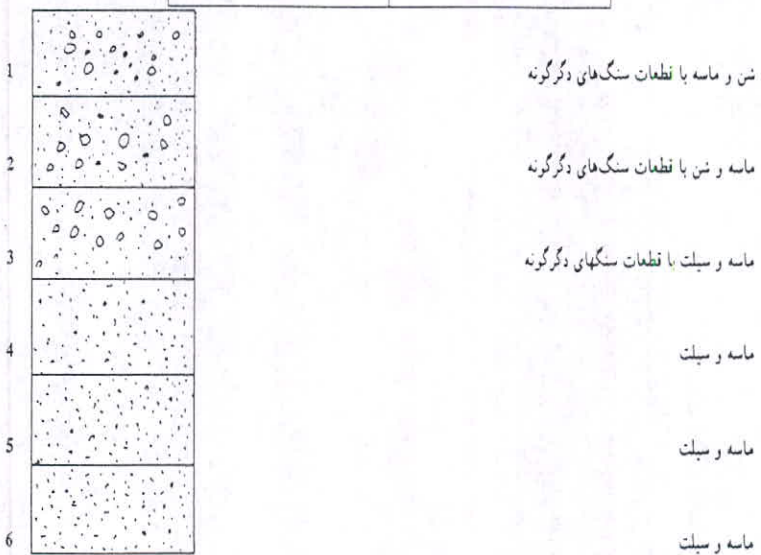 1 شن و ماسه با قطعات سنگ‌های دگرگونه
2 ماسه و شن با قطعات سنگ‌های دگرگونه
3 ماسه و سیلت با قطعات سنگهای دگرگونه
4 ماسه و سیلت
5 ماسه و سیلت
6 ماسه و سیلت